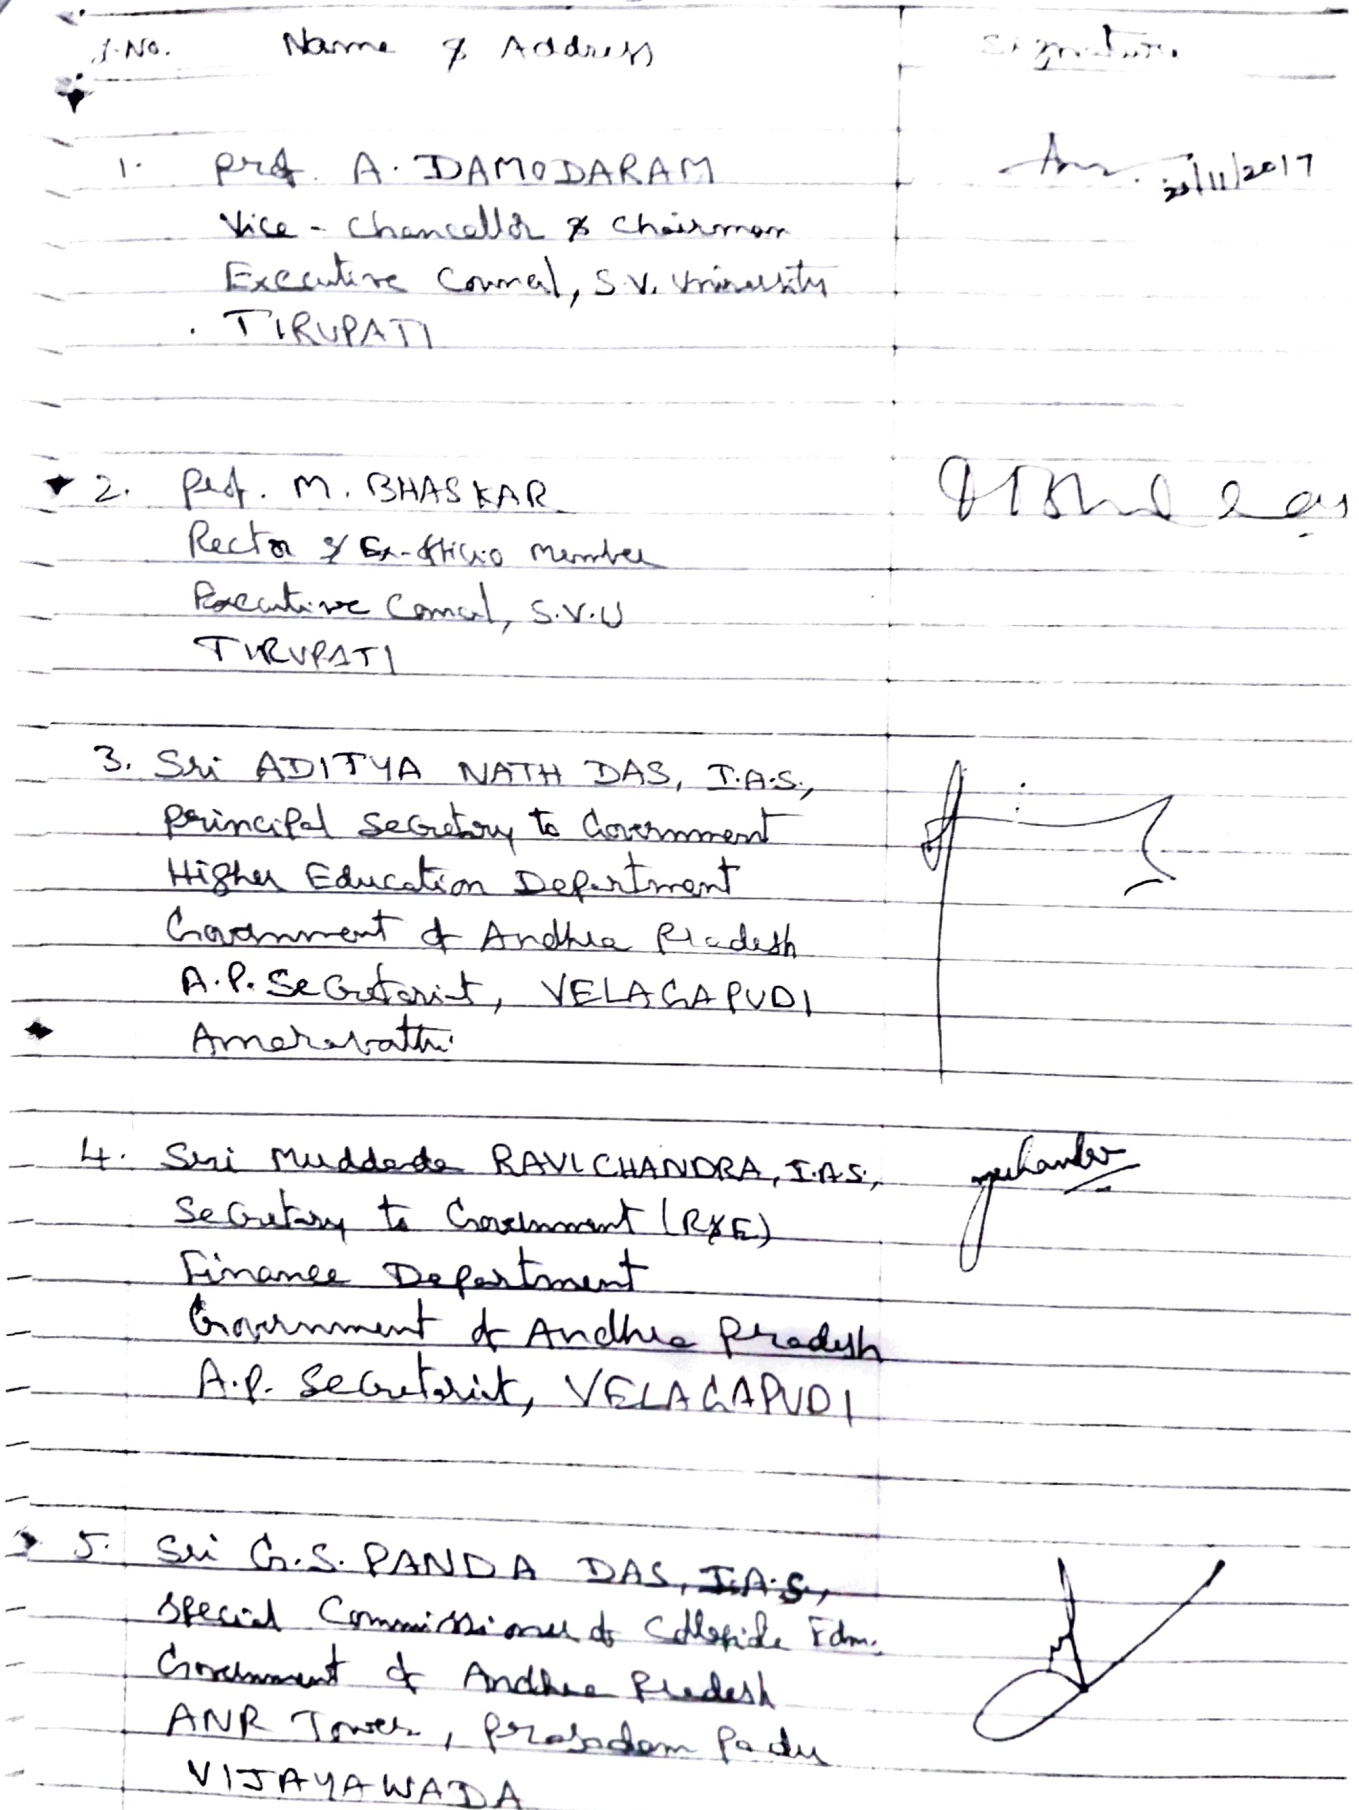 S.No. Name & Address Signature
1. Prof. A. DAMODARAM
Vice-Chancellor & Chairman
Executive Council, S.V. University
TIRUPATI
/11/2017
2. Prof. M. BHASKAR
Rector & Ex-officio Member
Executive Council, S.V.U
TIRUPATI
3. Sri ADITYA NATH DAS, I.A.S.,
Principal Secretary to Government
Higher Education Department
Government of Andhra Pradesh
A.P. Secretariat, VELAGAPUDI
Amaravathi
4. Sri Muddada RAVICHANDRA, I.A.S.,
Secretary to Government (R&E)
Finance Department
Government of Andhra Pradesh
A.P. Secretariat, VELAGAPUDI
5. Sri G.S. PANDA DAS, I.A.S.,
Special Commissioner of Collegiate Edn.
Government of Andhra Pradesh
ANR Tower, Prasadam Padu
VIJAYAWADA